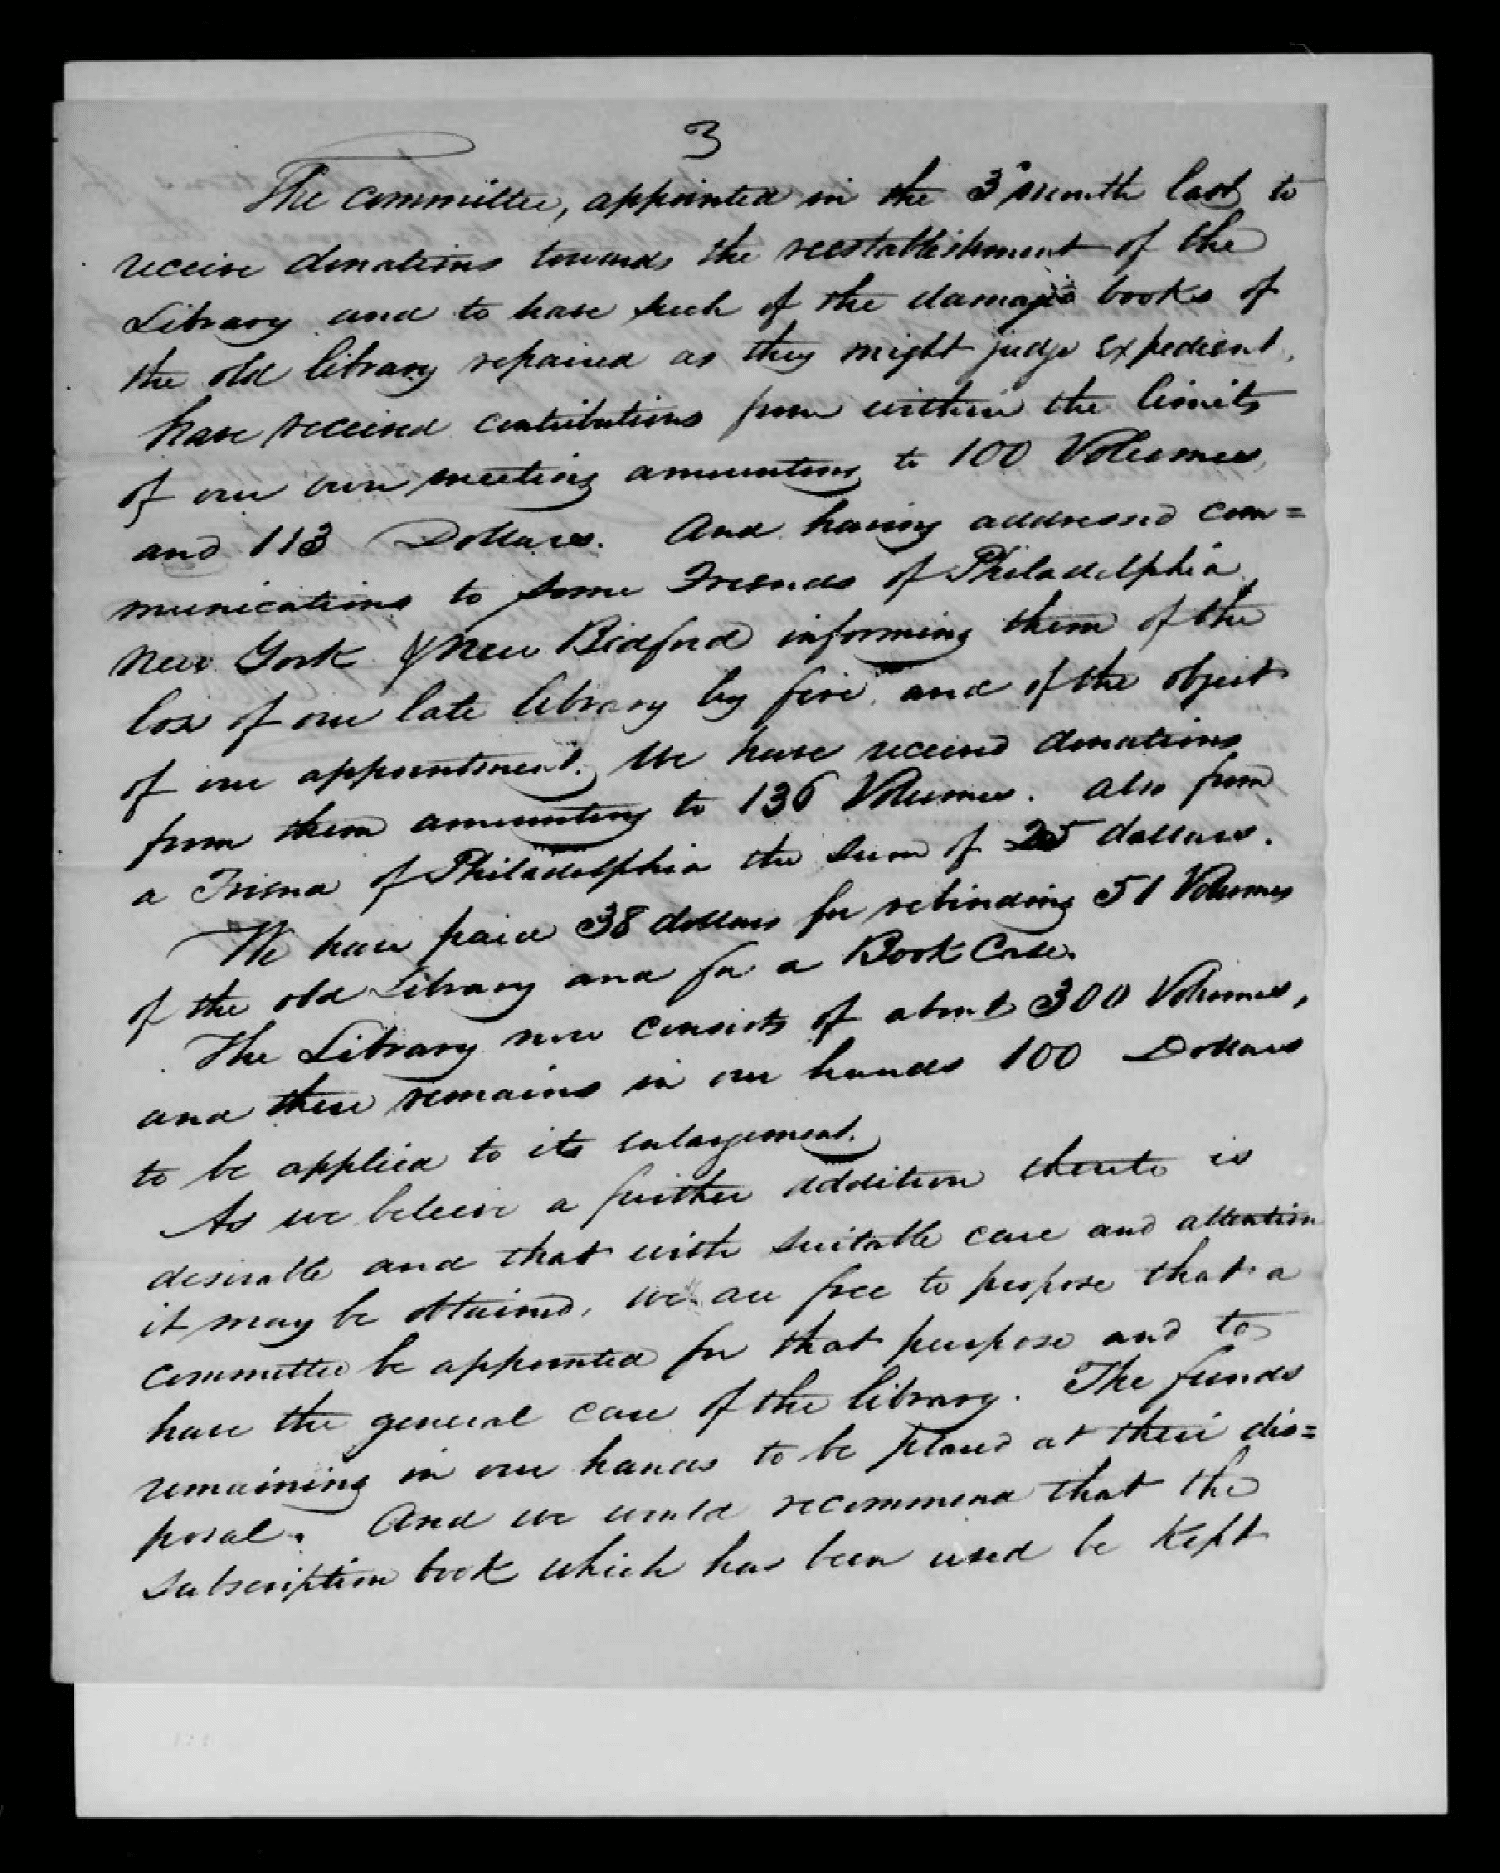 3
The committee, appointed in the 3d month last to
receive donations towards the reestablishment of the
Library and to have such of the damaged books of
the old library repaired as they might judge expedient,
have received contributions from within the limits
of our own meeting amounting to 100 Volumes,
and 113 Dollars. And having addressed com=
munications to some Friends of Philadelphia,
New York & New Bedford informing them of the
loss of our late library by fire, and of the object
of our appointment. We have received donations
from them amounting to 136 Volumes. also from
a Friend of Philadelphia the sum of 25 dollars.
We have paid 38 dollars for rebinding 51 Volumes
of the old Library and for a Book Case.
The Library now consists of about 300 Volumes,
and there remains in our hands 100 Dollars
to be applied to its enlargement.
As we beleive a further addition thereto is
desirable and that with suitable care and attention
it may be obtained, we are free to propose that a
committee be appointed for that purpose and to
have the general care of the library. The funds
remaining in our hands to be placed at their dis=
posal. And we would recommend that the
subscription book which has been used be kept